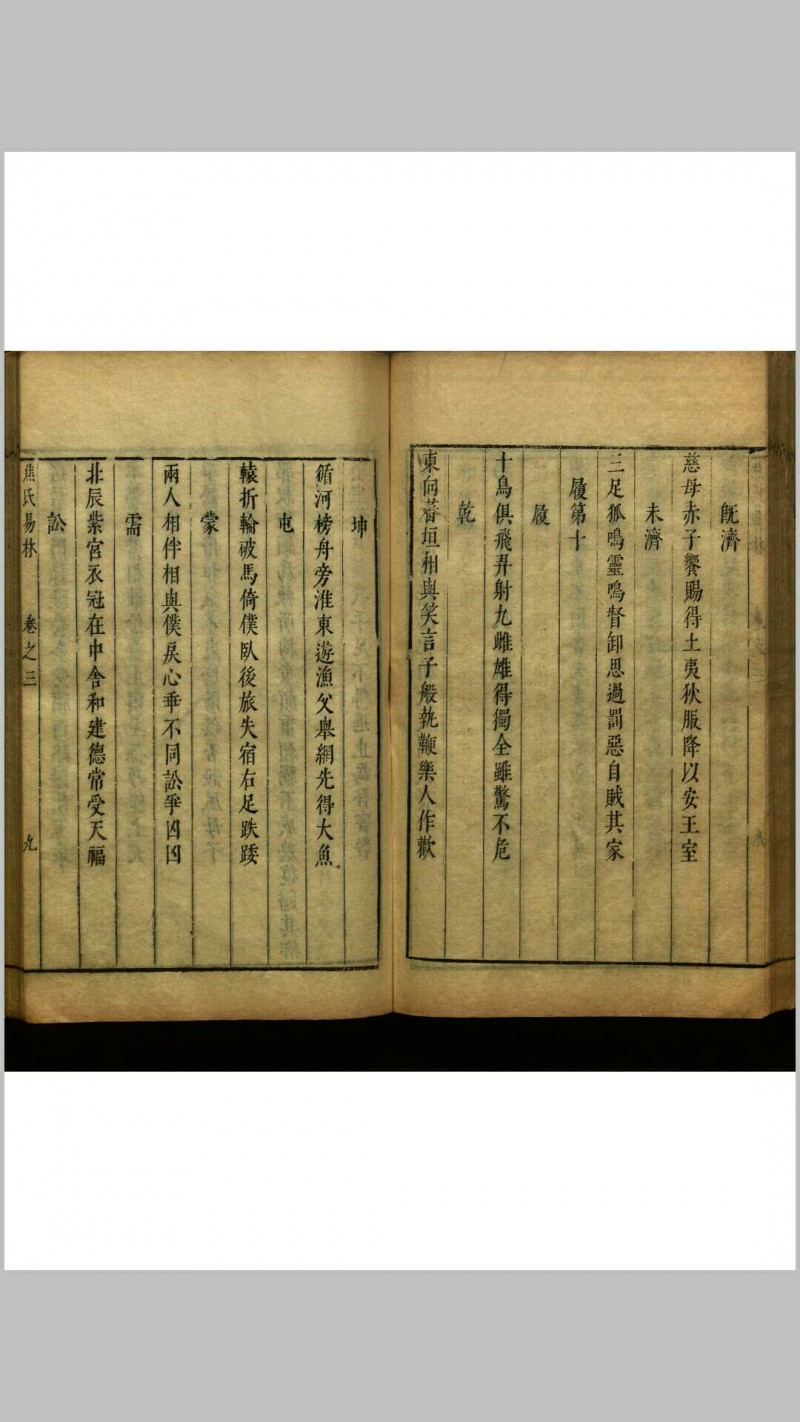 既濟
慈母赤子饗賜得土夷狄服降以安王室
未濟
三足狐鳴靈鳴督卸思過罰惡自賊其家
履第十
履
十鳥俱飛羿射九雌雄得獨全雖驚不危
乾
東向蕃垣相與笑言子般執鞭樂人作歡
坤
循河榜舟旁淮東遊漁父舉網先得大魚
屯
轅折輪破馬倚僕臥後旅失宿右足跌踒
蒙
兩人相伴相與僕戾心乖不同訟爭凶凶
需
北辰紫宮衣冠在中含和建德常受天福
訟
焦氏易林 卷之三 九